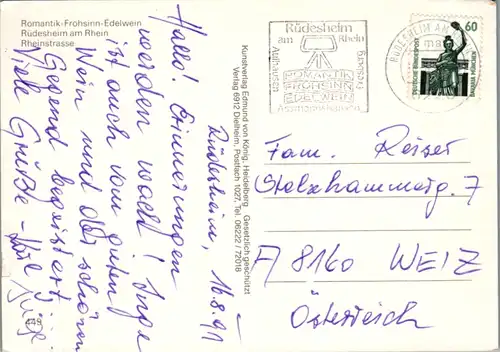 Romantik-Frohsinn-Edelwein
Rüdesheim am Rhein
Rheinstrasse
Rüdesheim, 16.8.91
Hallo! Erinnerungen
werden wach! Inge
ist auch vom guten
Wein und der schönen
Gegend begeistert!
Viele Grüße -
Inge
449
Kunstverlag Edmund von König, Heidelberg Gesetzlich geschützt
Verlag 6912 Dielheim, Postfach 1027, Tel. 06222/72018
Rüdesheim
am Rhein
ROMANTIK
FROHSINN
EDELWEIN
Assmannshausen
Aulhausen
Eibingen
RÜDESHEIM AM
60
DEUTSCHE BUNDESPOST
BAVARIA MÜNCHEN
Fam. Reiser
Stelzhammerg. 7
A/8160 WEIZ
Österreich